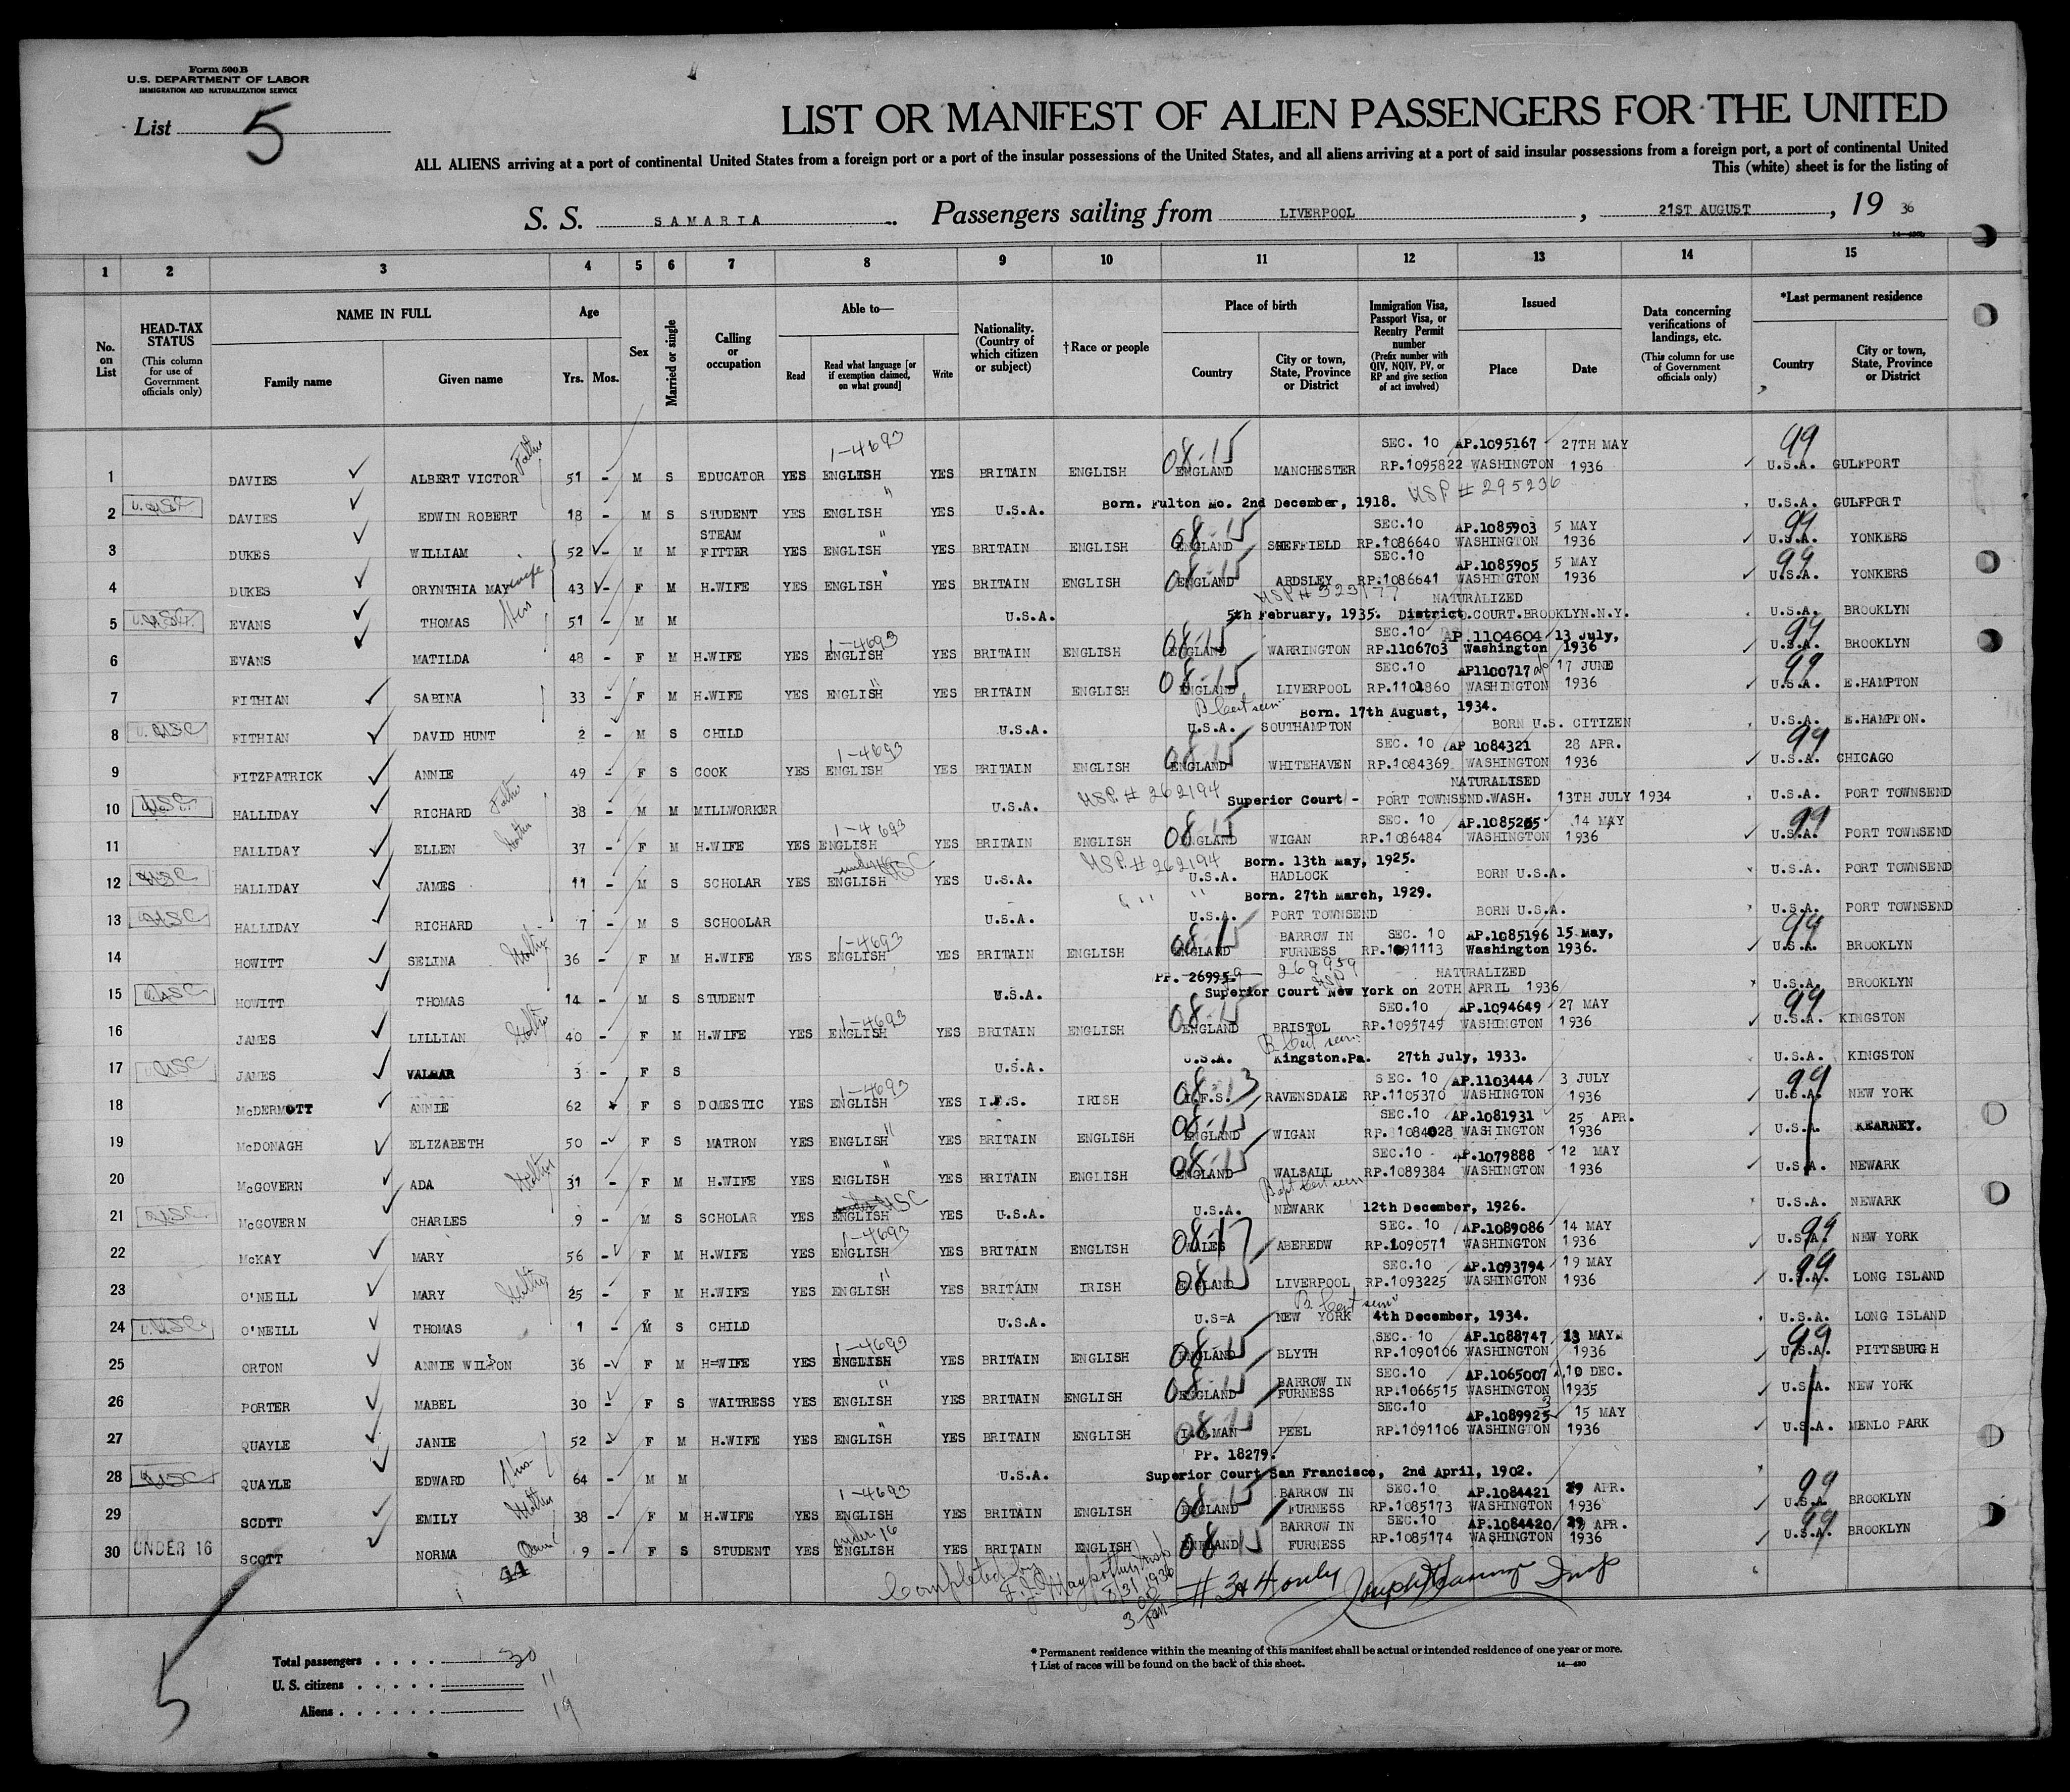 Form 500 B
U.S. DEPARTMENT OF LABOR
IMMIGRATION AND NATURALIZATION SERVICE
List 5
LIST OR MANIFEST OF ALIEN PASSENGERS FOR THE UNITED
ALL ALIENS arriving at a port of continental United States from a foreign port or a port of the insular possessions of the United States, and all aliens arriving at a port of said insular possessions from a foreign port, a port of continental United
This (white) sheet is for the listing of
S. S. SAMARIA Passengers sailing from LIVERPOOL , 21ST AUGUST , 19 36
1 2 3 4 5 6 7 8 9 10 11 12 13 14 15
No. on List
HEAD-TAX STATUS (This column for use of Government officials only)
NAME IN FULL
Family name Given name
Age
Yrs. Mos.
Sex
Married or single
Calling or occupation
Able to—
Read Read what language [or if exemption claimed, on what ground] Write
Nationality. (Country of which citizen or subject)
†Race or people
Place of birth
Country City or town, State, Province or District
Immigration Visa, Passport Visa, or Reentry Permit number (Prefix number with QIV, NQIV, PV, or RP and give section of act involved)
Issued
Place Date
Data concerning verifications of landings, etc. (This column for use of Government officials only)
*Last permanent residence
Country City or town, State, Province or District
1-4693 08-15 SEC. 10 AP.1095167 27TH MAY 99
1 DAVIES ALBERT VICTOR Father 51 - M S EDUCATOR YES ENGLISH YES BRITAIN ENGLISH ENGLAND MANCHESTER RP.1095822 WASHINGTON 1936 U.S.A. GULFPORT
USP # 295236
2 USC DAVIES EDWIN ROBERT 18 - M S STUDENT YES ENGLISH " YES U.S.A. Born. Fulton Mo. 2nd December, 1918. U.S.A. GULFPORT
STEAM 08-15 SEC.10 AP.1085903 5 MAY 99
3 DUKES WILLIAM 52 - M M FITTER YES ENGLISH " YES BRITAIN ENGLISH ENGLAND SHEFFIELD RP.1086640 WASHINGTON 1936 U.S.A. YONKERS
08-15 SEC.10 AP.1085905 5 MAY 99
4 DUKES ORYNTHIA MAY wife 43 - F M H.WIFE YES ENGLISH " YES BRITAIN ENGLISH ENGLAND ARDSLEY RP.1086641 WASHINGTON 1936 U.S.A. YONKERS
NATURALIZED
5 USC EVANS THOMAS 51 - M M U.S.A. 5th February, 1935. District.COURT.BROOKLYN.N.Y. U.S.A. BROOKLYN
1-4693 08-15 SEC.10 AP.1104604 13 July, 99
6 EVANS MATILDA 48 - F M H.WIFE YES ENGLISH YES BRITAIN ENGLISH ENGLAND WARRINGTON RP.1106703 Washington 1936 U.S.A. BROOKLYN
08-15 SEC.10 AP1100717 17 JUNE 99
7 FITHIAN SABINA 33 - F M H.WIFE YES ENGLISH " YES BRITAIN ENGLISH ENGLAND LIVERPOOL RP.1101860 WASHINGTON 1936 U.S.A. E.HAMPTON
B. Cert seen Born. 17th August, 1934.
8 USC FITHIAN DAVID HUNT 2 - M S CHILD U.S.A. U.S.A. SOUTHAMPTON BORN U.S. CITIZEN U.S.A. E.HAMPTON.
1-4693 08-15 SEC. 10 AP 1084321 28 APR. 99
9 FITZPATRICK ANNIE 49 - F S COOK YES ENGLISH YES BRITAIN ENGLISH ENGLAND WHITEHAVEN RP.1084369 WASHINGTON 1936 U.S.A. CHICAGO
USP. # 262194 NATURALISED
10 USC HALLIDAY RICHARD Father 38 - M M MILLWORKER U.S.A. Superior Court - PORT TOWNSEND.WASH. 13TH JULY 1934 U.S.A. PORT TOWNSEND
1-4693 08-15 SEC. 10 AP.1085265 14 MAY 99
11 HALLIDAY ELLEN Mother 37 - F M H.WIFE YES ENGLISH YES BRITAIN ENGLISH ENGLAND WIGAN RP.1086484 WASHINGTON 1936 U.S.A. PORT TOWNSEND
USC USP. # 262194 Born. 13th May, 1925.
12 USC HALLIDAY JAMES 11 - M S SCHOLAR YES ENGLISH YES U.S.A. U.S.A. HADLOCK BORN U.S.A. U.S.A. PORT TOWNSEND
" " " Born. 27th March, 1929.
13 USC HALLIDAY RICHARD 7 - M S SCHOOLAR U.S.A. U.S.A. PORT TOWNSEND BORN U.S.A. U.S.A. PORT TOWNSEND
1-4693 08-15 BARROW IN SEC. 10 AP.1085196 15 May, 99
14 HOWITT SELINA Mother 36 - F M H.WIFE YES ENGLISH YES BRITAIN ENGLISH ENGLAND FURNESS RP.1091113 Washington 1936. U.S.A. BROOKLYN
PP. 269959 269959 USP NATURALIZED
15 USC HOWITT THOMAS 14 - M S STUDENT U.S.A. Superior Court New York on 20TH APRIL 1936 U.S.A. BROOKLYN
1-4693 08-15 SEC.10 AP.1094649 27 MAY 99
16 JAMES LILLIAN Mother 40 - F M H.WIFE YES ENGLISH YES BRITAIN ENGLISH ENGLAND BRISTOL RP.1095745 WASHINGTON 1936 U.S.A. KINGSTON
B. Cert seen
17 USC JAMES VALMAR 3 - F S U.S.A. U.S.A. Kingston.Pa. 27th July, 1933. U.S.A. KINGSTON
1-4693 08-13 SEC. 10 AP.1103444 3 JULY 99
18 McDERMOTT ANNIE 62 F S DOMESTIC YES ENGLISH YES I.F.S. IRISH I.F.S. RAVENSDALE RP.1105370 WASHINGTON 1936 U.S.A. NEW YORK
08-15 SEC.10 AP.1081931 25 APR.
19 McDONAGH ELIZABETH 50 - F S MATRON YES ENGLISH " YES BRITAIN ENGLISH ENGLAND WIGAN RP.1084028 WASHINGTON 1936 U.S.A. KEARNEY.
08-15 SEC.10 AP.1079888 12 MAY
20 McGOVERN ADA Mother 31 - F M H.WIFE YES ENGLISH " YES BRITAIN ENGLISH ENGLAND WALSALL RP.1089384 WASHINGTON 1936 U.S.A. NEWARK
USC Bapt Cert seen
21 USC McGOVERN CHARLES 9 - M S SCHOLAR YES ENGLISH YES U.S.A. U.S.A. NEWARK 12th December, 1926. U.S.A. NEWARK
1-4693 08-17 SEC. 10 AP.1089086 14 MAY 99
22 McKAY MARY 56 - F M H.WIFE YES ENGLISH YES BRITAIN ENGLISH WALES ABEREDW RP.1090571 WASHINGTON 1936 U.S.A. NEW YORK
08-15 SEC.10 AP.1093794 19 MAY 99
23 O'NEILL MARY Mother 25 - F M H.WIFE YES ENGLISH " YES BRITAIN IRISH ENGLAND LIVERPOOL RP.1093225 WASHINGTON 1936 U.S.A. LONG ISLAND
B. Cert seen
24 USC O'NEILL THOMAS 1 - M S CHILD U.S.A. U.S=A NEW YORK 4th December, 1934. U.S.A. LONG ISLAND
1-4693 08-15 SEC. 10 AP.1088747 13 MAY. 99
25 ORTON ANNIE WILSON 36 - F M H=WIFE YES ENGLISH YES BRITAIN ENGLISH ENGLAND BLYTH RP.1090106 WASHINGTON 1936 U.S.A. PITTSBURGH
08-15 BARROW IN SEC.10 AP.1065007 10 DEC.
26 PORTER MABEL 30 - F S WAITRESS YES ENGLISH " YES BRITAIN ENGLISH ENGLAND FURNESS RP.1066515 WASHINGTON 1935 U.S.A. NEW YORK
08-15 SEC.10 AP.1089925 3 15 MAY
27 QUAYLE JANIE 52 - F M H.WIFE YES ENGLISH " YES BRITAIN ENGLISH I.O.MAN PEEL RP.1091106 WASHINGTON 1936 U.S.A. MENLO PARK
PP. 18279.
28 USC QUAYLE EDWARD 64 - M M U.S.A. Superior Court San Francisco, 2nd April, 1902.
1-4693 08-15 BARROW IN SEC.10 AP.1084421 29 APR. 99
29 SCOTT EMILY Mother 38 - F M H.WIFE YES ENGLISH YES BRITAIN ENGLISH ENGLAND FURNESS RP.1085173 WASHINGTON 1936 U.S.A. BROOKLYN
under 16 08 15 BARROW IN SEC.10 AP.1084420 29 APR. 99
30 UNDER 16 SCOTT NORMA 9 - F S STUDENT YES ENGLISH YES BRITAIN ENGLISH ENGLAND FURNESS RP.1085174 WASHINGTON 1936 U.S.A. BROOKLYN
11
Completed by
8/31/1936
# 3 & 4 only
* Permanent residence within the meaning of this manifest shall be actual or intended residence of one year or more.
† List of races will be found on the back of this sheet.
14—430
Total passengers . . . . 30
U. S. citizens . . . . . 11
Aliens . . . . . . 19
5